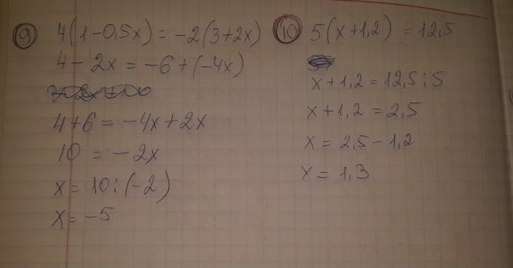 9 4(1-0,5x) = -2(3+2x)
4 - 2x = -6 + (-4x)
4+6 = -4x + 2x
10 = -2x
x = 10 : (-2)
x = -5
10 5(x+1,2) = 12,5
x+1,2 = 12,5 : 5
x+1,2 = 2,5
x = 2,5 - 1,2
x = 1,3